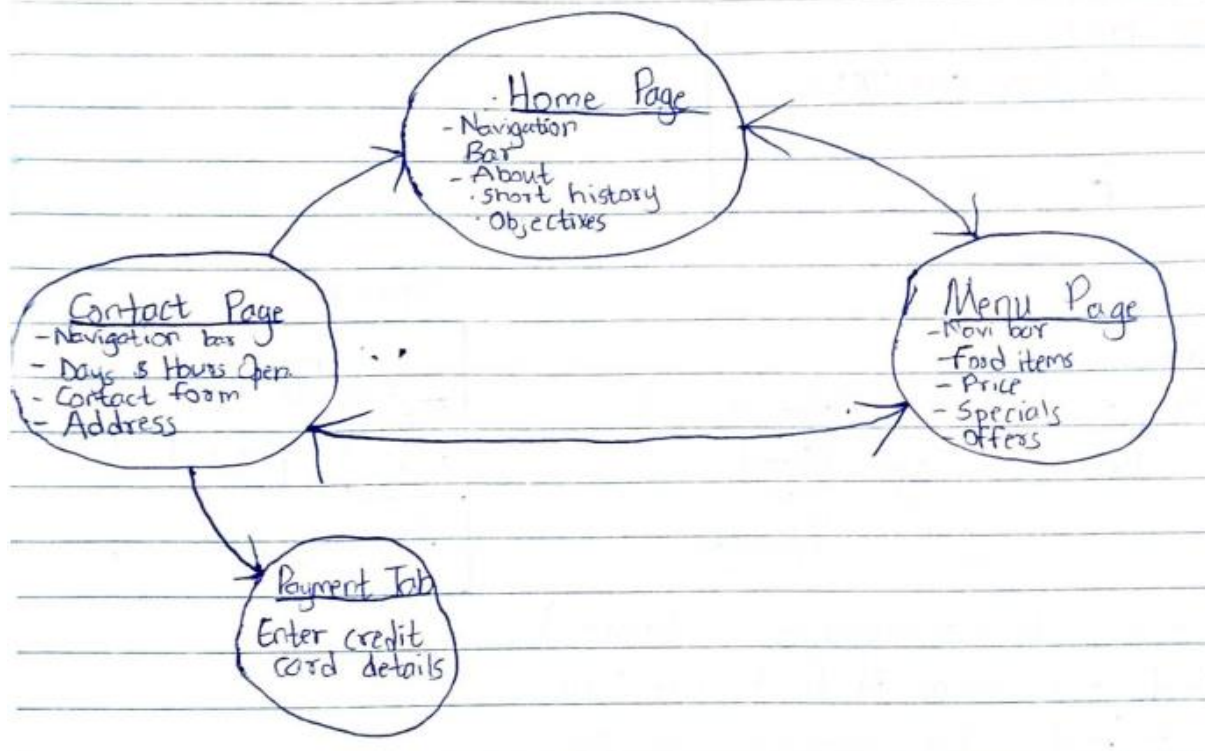 Home Page
- Navigation
Bar
- About
· short history
· Objectives
Contact Page
- Navigation bar
- Days & Hours Open
- Contact form
- Address
Menu Page
- Navi bar
- Food items
- Price
- Specials
- Offers
Payment Tab
Enter credit
card details